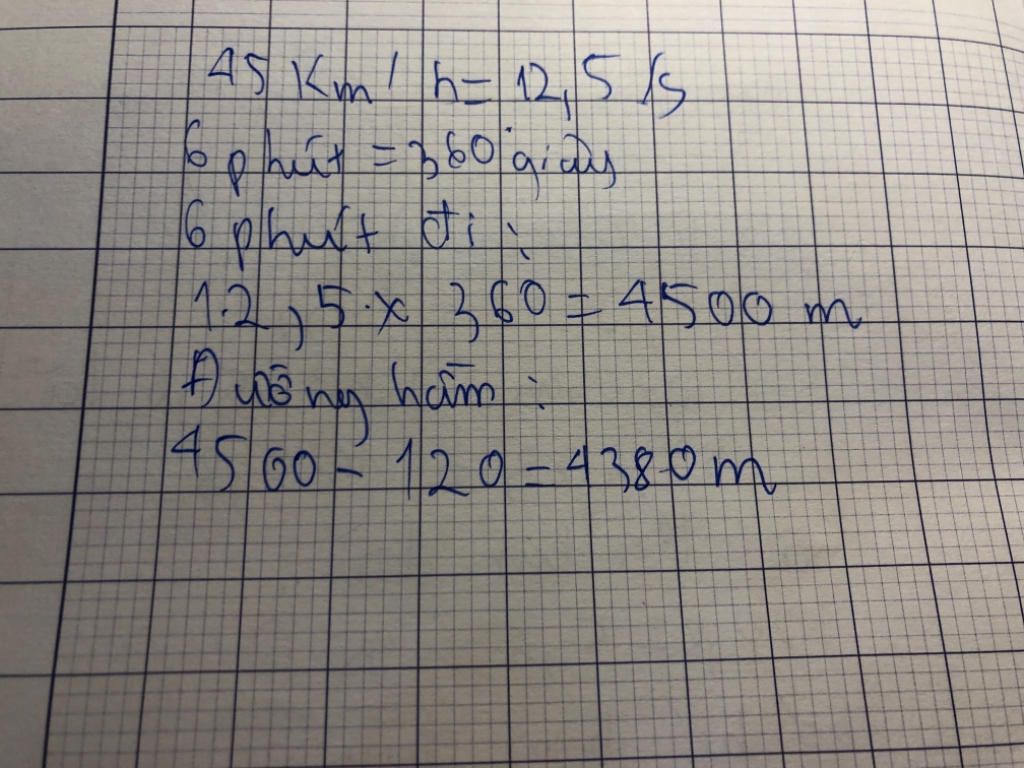 45 Km/h = 12,5 /s
6 phút = 360 giây
6 phút đi :
12,5 x 360 = 4500 m
Đường hầm :
4500 - 120 = 4380 m